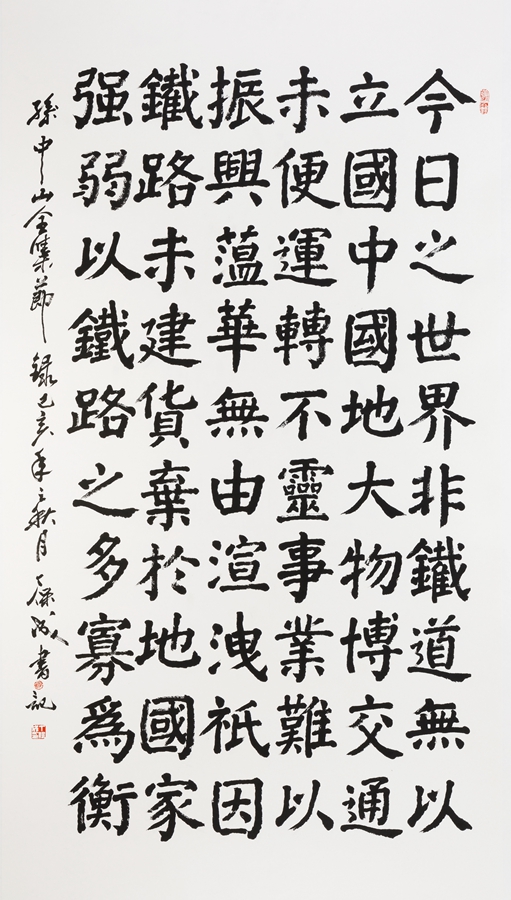 今日之世界非鐵道無以
立國中國地大物博交通
未便運轉不靈事業難以
振興薀華無由渲洩祇因
鐵路未建貨棄於地國家
强弱以鐵路之多寡爲衡
孫中山全集節錄己亥年之秋月書記